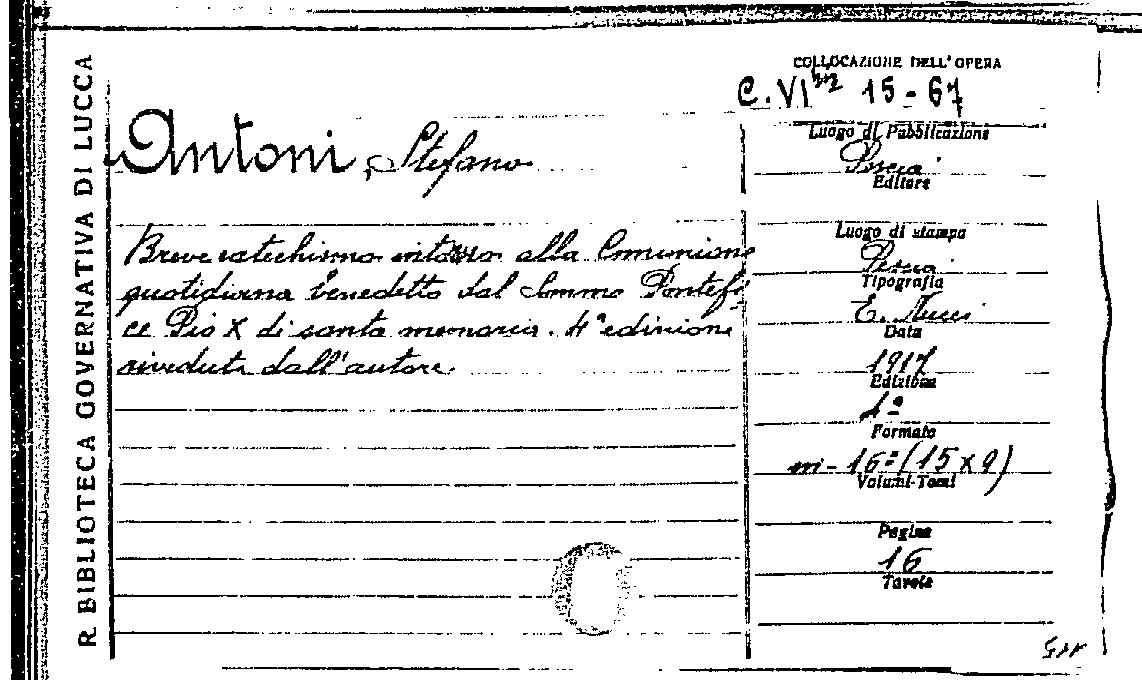 R BIBLIOTECA GOVERNATIVA DI LUCCA
Antoni, Stefano
Breve catechismo intorno alla Comunione
quotidiana benedetto dal Sommo Pontefi
ce Pio X di santa memoria. 4ª edizione
riveduta dall'autore.
COLLOCAZIONE DELL'OPERA
C. VI 15-67
Luogo di Pubblicazione
Pescia
Editore
Luogo di stampa
Pescia
Tipografia
E. Nucci
Data
1917
Edizione
4ª
Formato
in-16º (15x9)
Volumi-Tomi
Pagine
16
Tavole